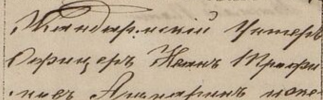 Жандармскій Унтеръ
Офицеръ Иванъ Трофи
мовъ